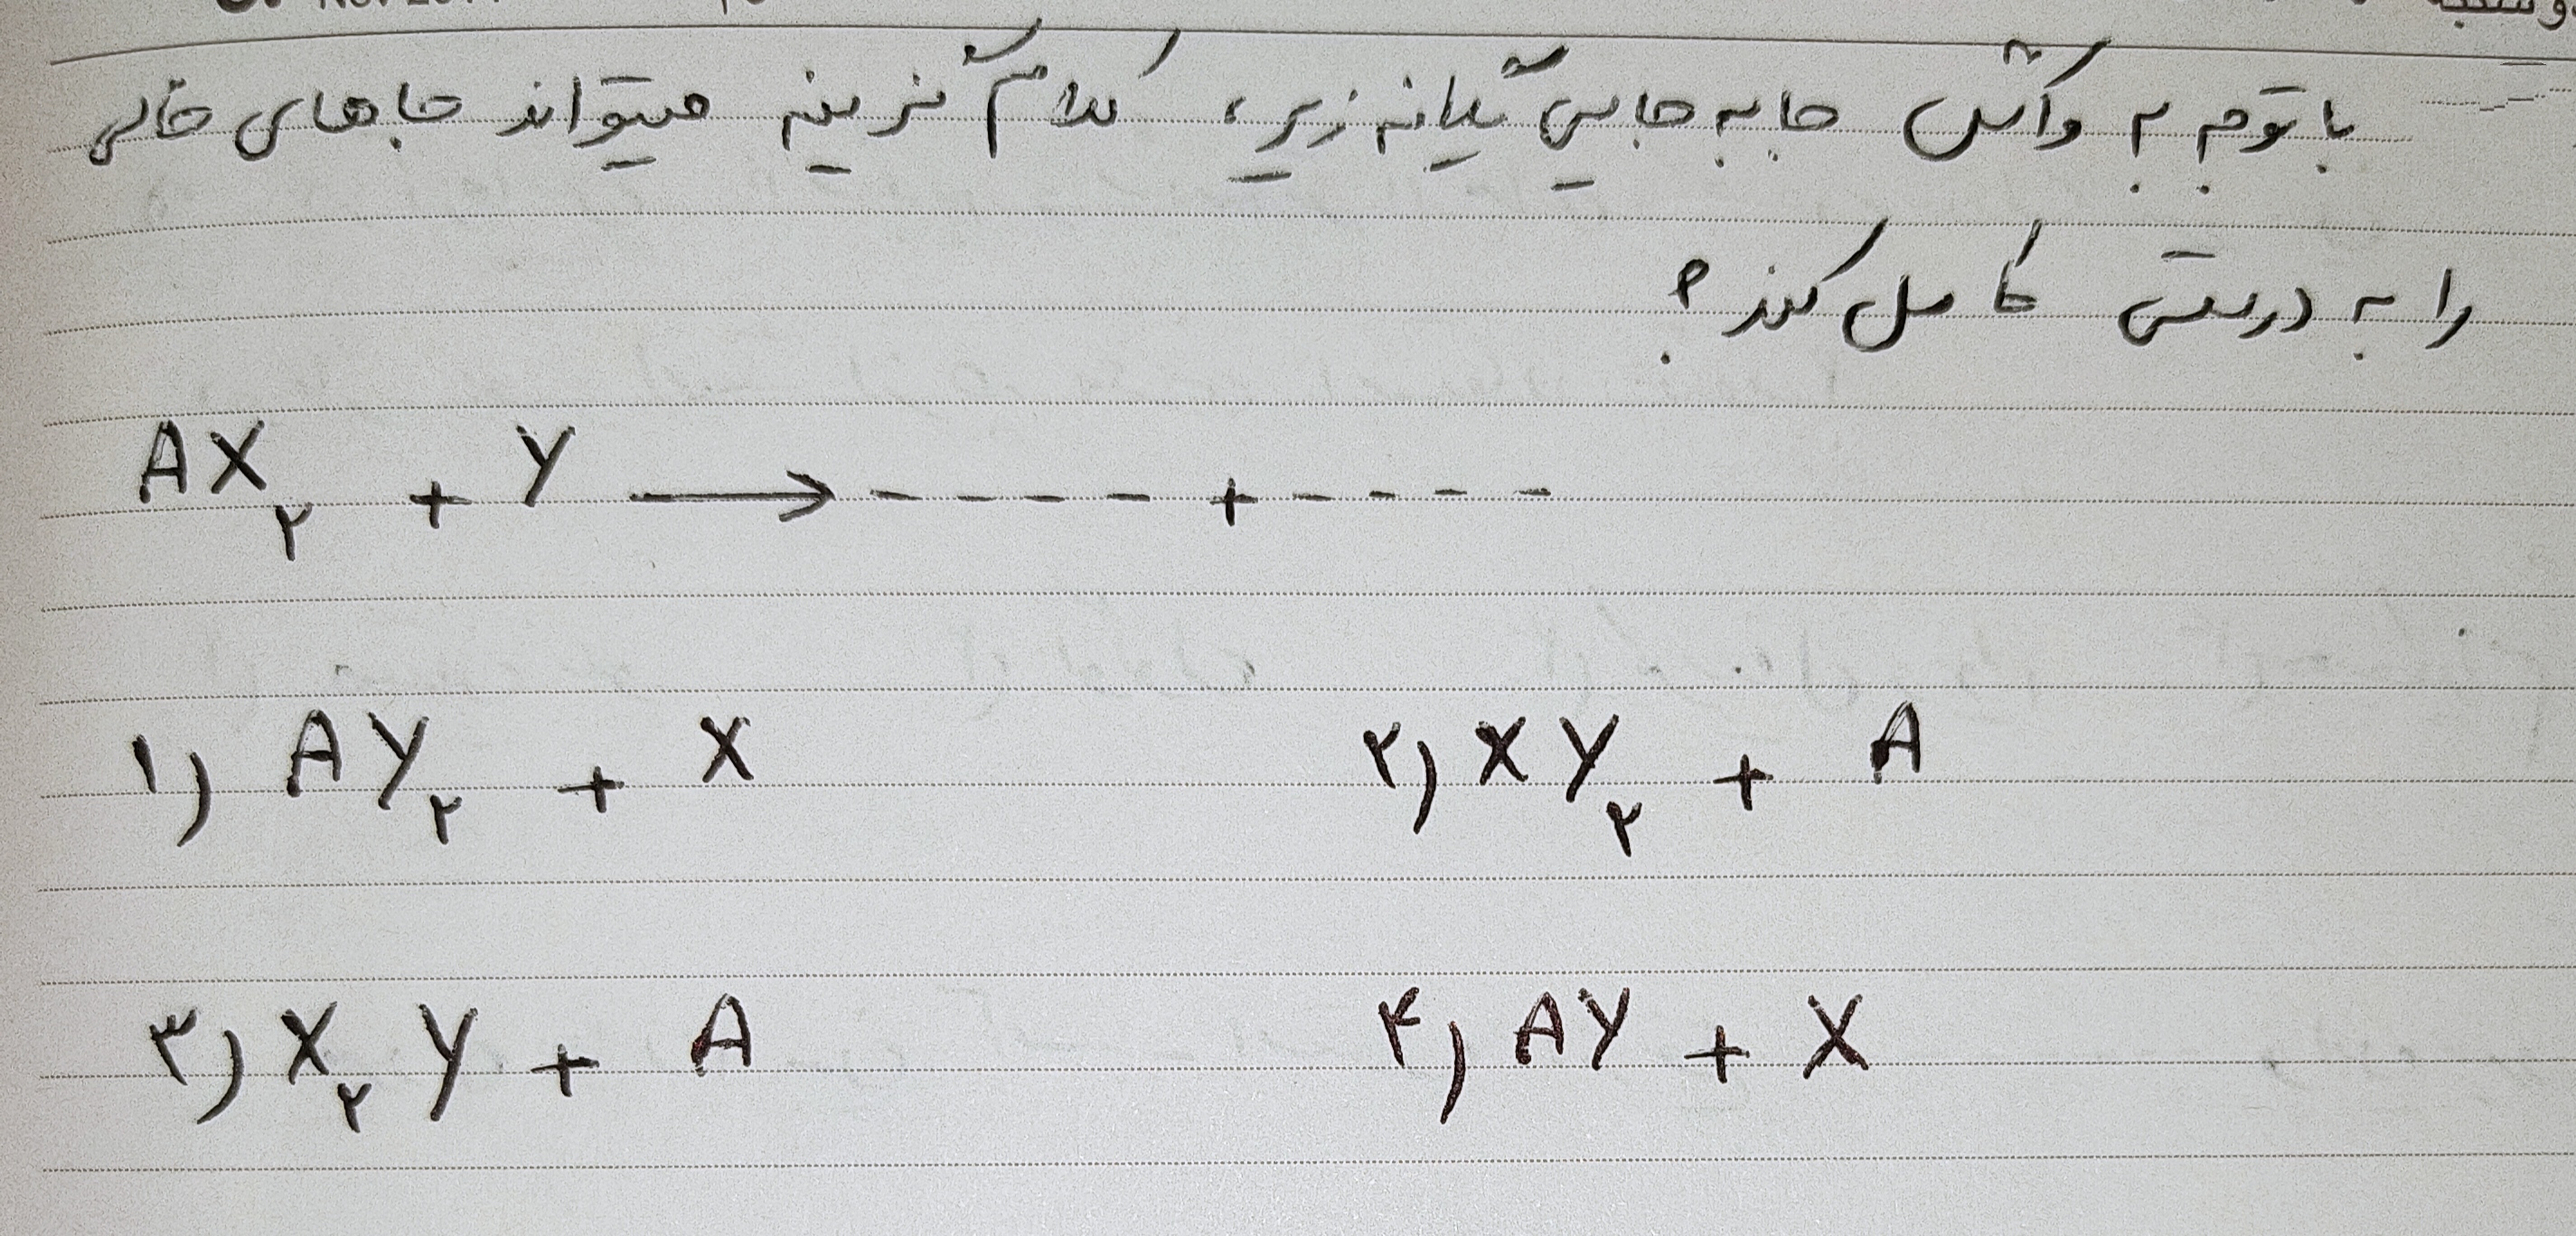 با توجه به واکنش جا به جایی یگانه زیر، کدام گزینه میتواند جاهای خالی
را به درستی کامل کند؟
AX₂ + Y ⟶ ----- + -----
۱) AY₂ + X
۲) XY₂ + A
۳) X₂Y + A
۴) AY + X